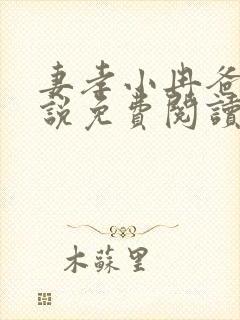 妻孝小冉爸
說免費閱讀
木蘇里